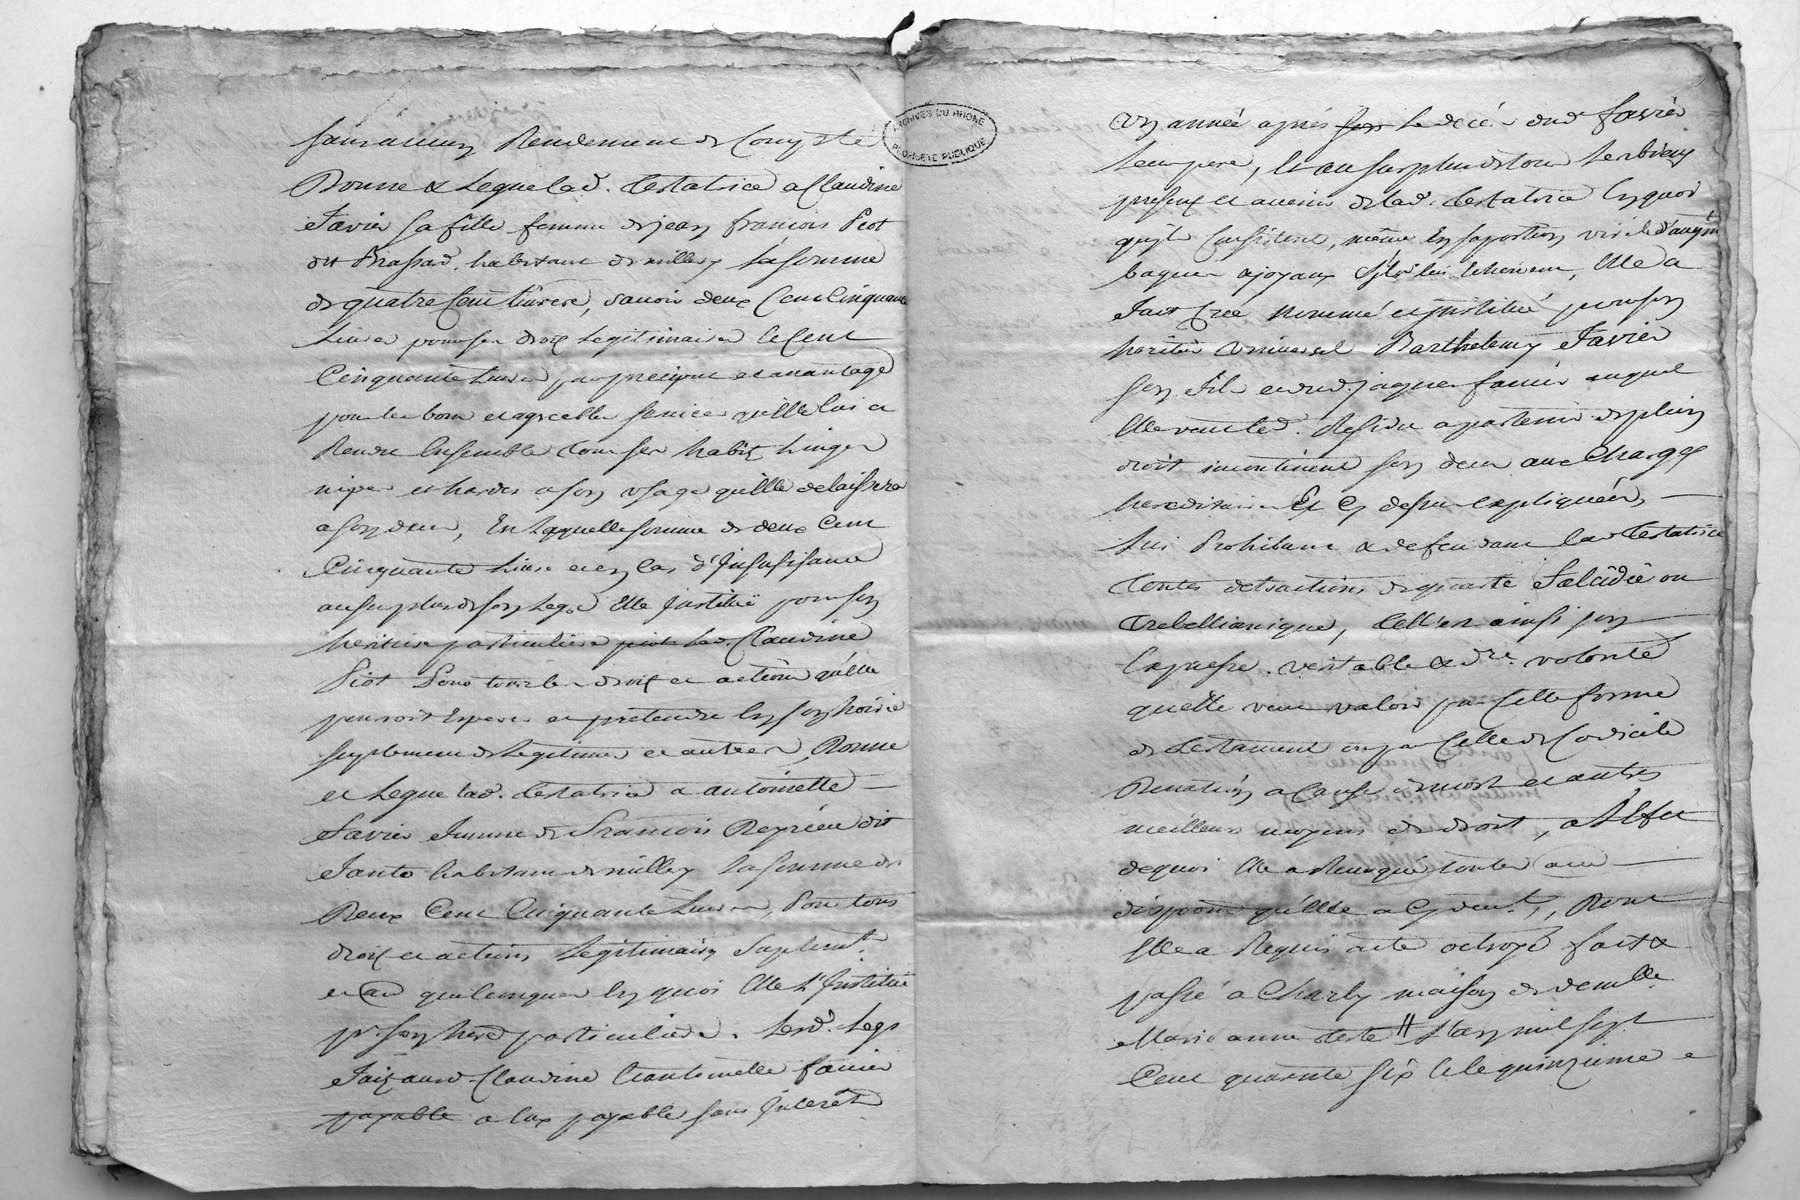 sans aucun Rendement de Compte
Donne & Legue lad. testatrice a Claudine
favier sa fille femme de jean francois Piot
dit Brassard, habitant de millery La somme
de quatre Cent livres, savoir deux Cent Cinquante
Livres pour ses droits Legitimaires Et Cent
Cinquante Livres par preciput et avantage
pour les bons et agreables services quelle lui a
Rendu Ensemble tous ses habits Linges
nipes et hardes a son usage quelle delaissera
a son deces, En Laquelle somme de deux Cent
Cinquante Livres et en Cas d'Insufisance
au surplus de son Legs Elle Institue pour son
heritiere particuliere piot lad. Claudine
Piot Pour tous les droits et actions quelle
pourroit Esperer et pretendre En son hoirie
suplement de Legitime et autres, Donne
et Legue lad. testatrice a antoinette
favier femme de francois
habitant de millery La somme de
Deux Cent Cinquante Livres, Pour tous
droits et actions Legitimaires Suplemt.
et au quelconques En quoi Elle L'Institue
pr. son here. particuliere. Lesd. Legs
faits auxd. Claudine Et antoinette favier
payable a lax payable sans Interets
ARCHIVES DU RHONE
PROPRIETE PUBLIQUE
Un année après son Le deces dud. favier
Leur pere, Et au surplus de tous Les biens
presents et avenir de lad. testatrice En quoi
quils Consistent, même En sa portion virile d'augm
bagues & joyaux Elle a
fait Crée Nommé et Institué pour son
heritier Universel Barthelemy favier
son fils et dud. jaques favier auquel
Elle veut led. Residu apartenir de plein
droit incontinent son deces aux Charges
hereditaires Et Cy dessus expliquées,
Lui Prohibant & defendant lad. testatrice
toutes detractions de quarte falcidie ou
trebellianique, Telle est ainsi son
Expresse. veritable & dre. volonté
quelle veut valoir par Celle forme
de testament ou par Celle de Codicile
Donation a Cause de mort et autres
meilleurs moyens de droit, a l'Effet
dequoi Elle a Revoqué toutes aues
dispoons quelle a Cy devt., Dont
Elle a Requis acte octroyé fait &
passé a Charly maison de demlle.
Marie anne teste # L'an mil sept
Cent quarante six Et le quinzieme